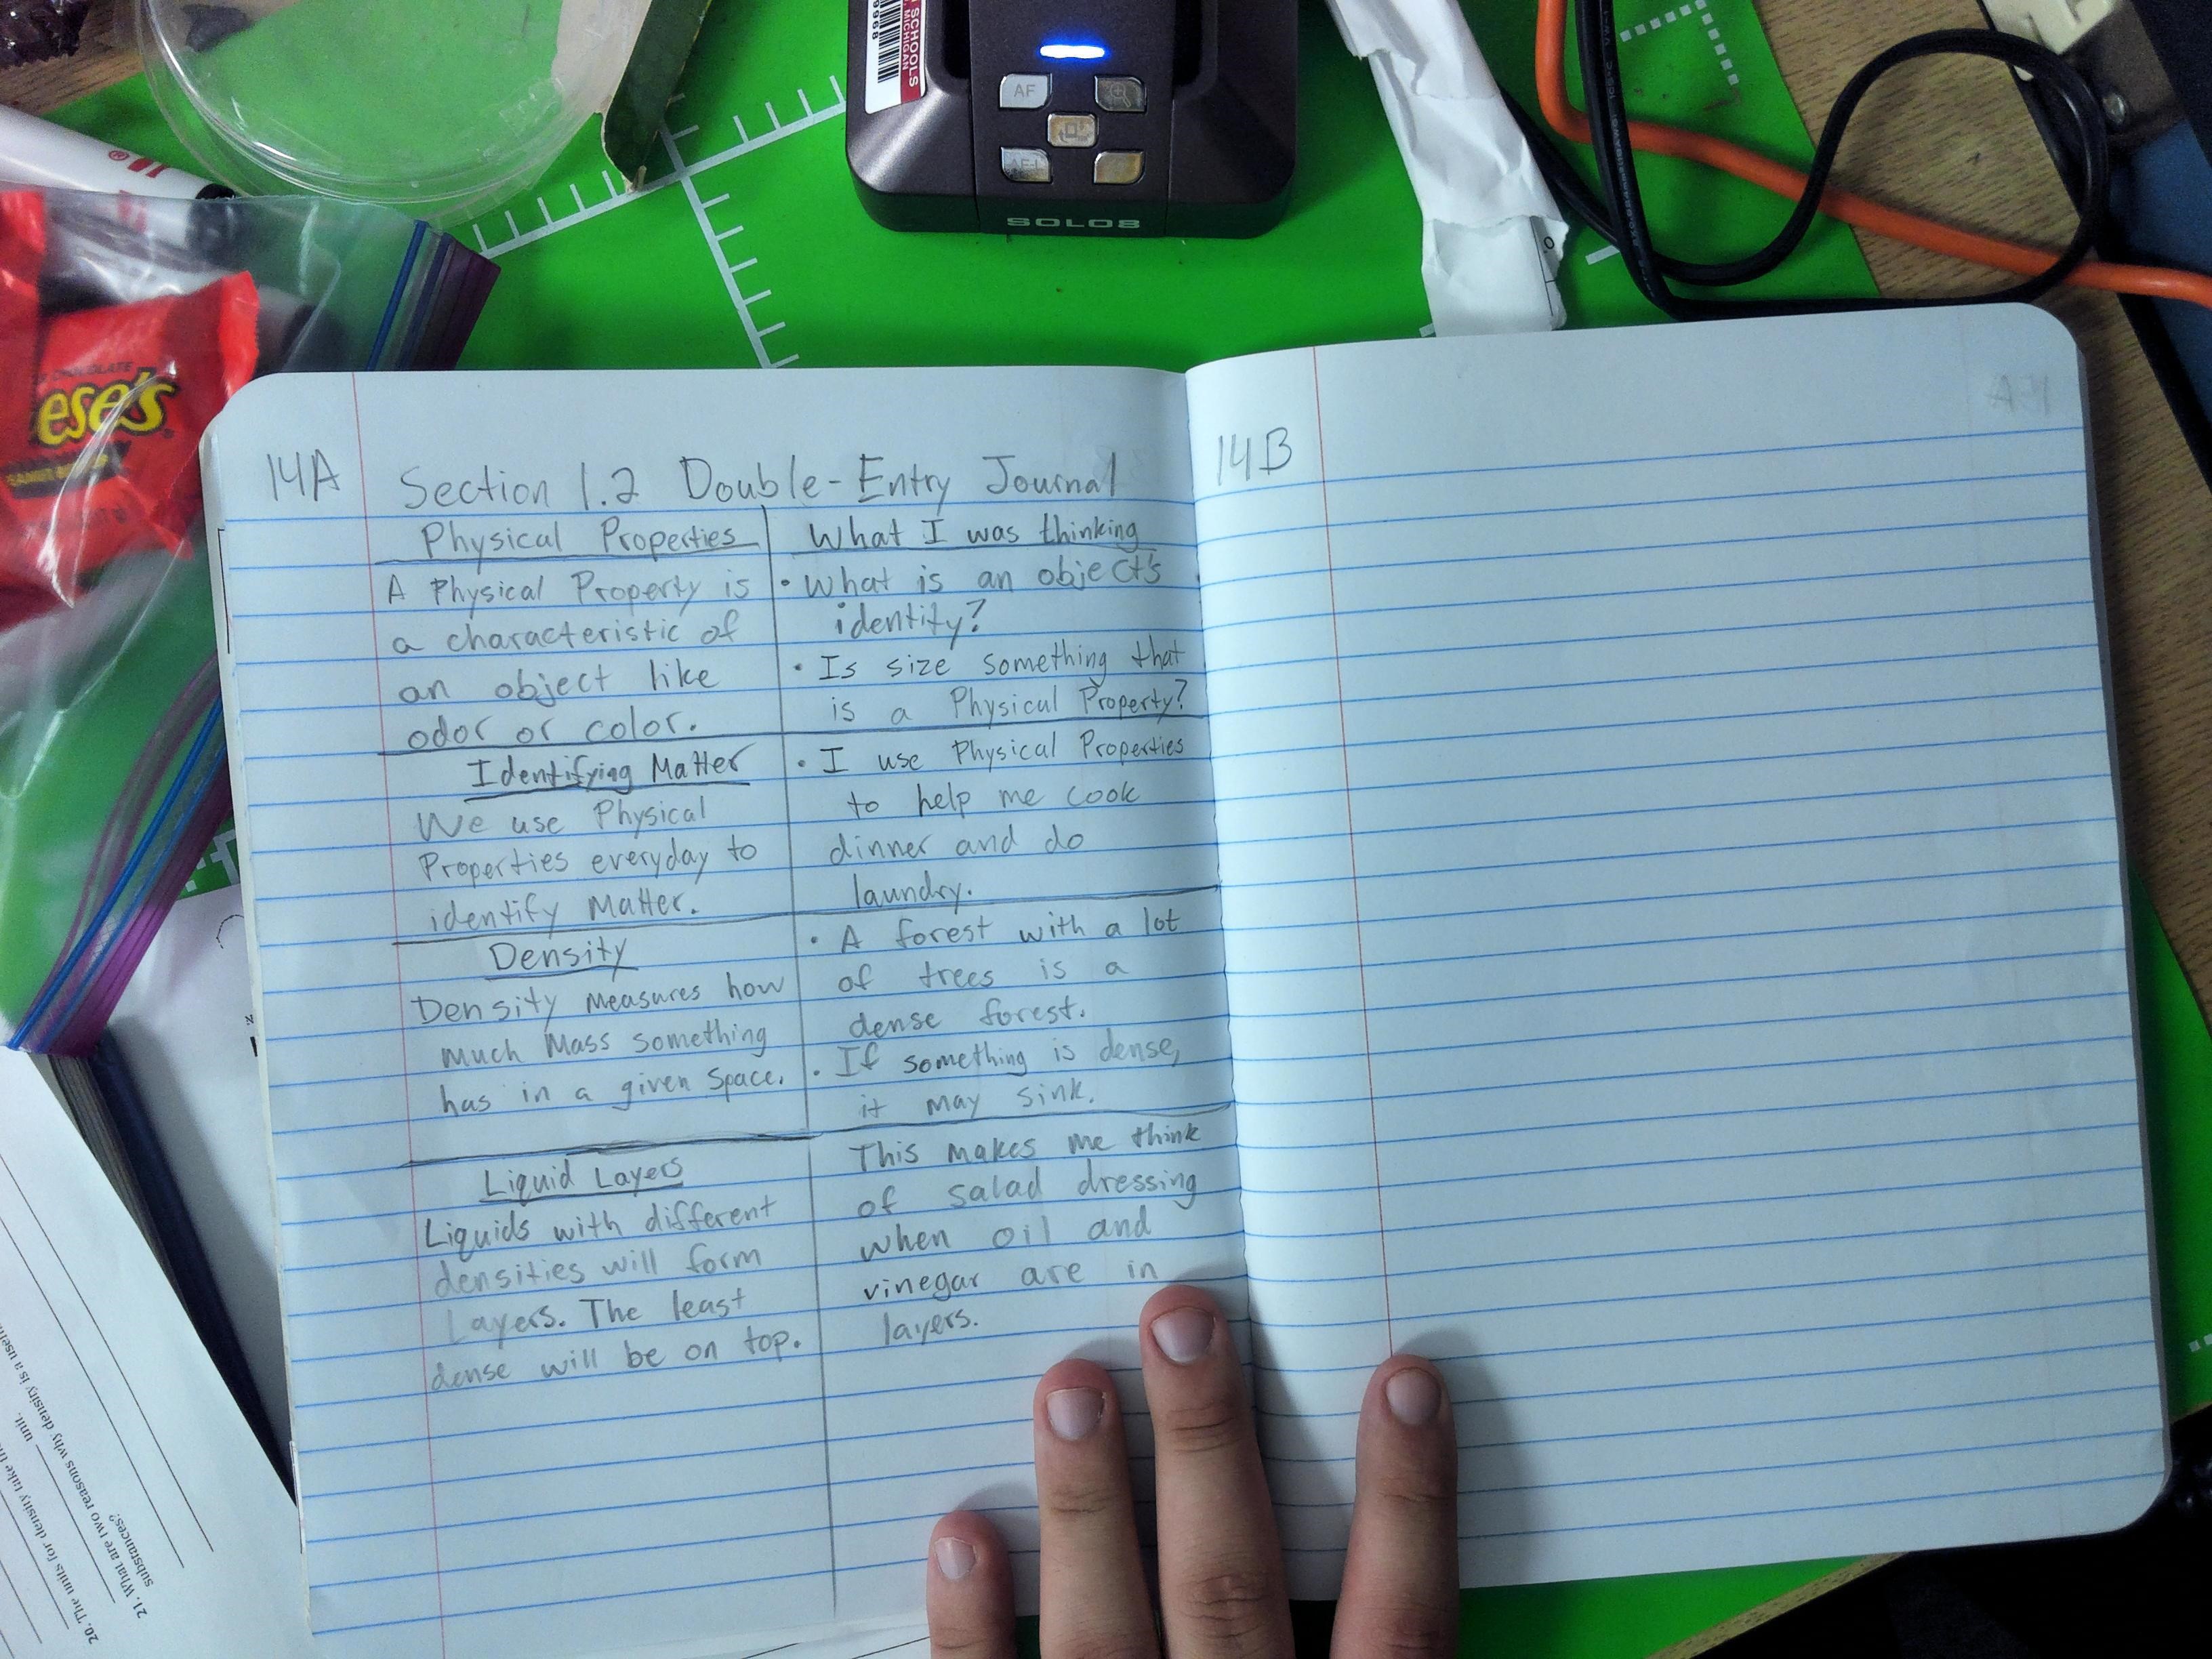 SCHOOLS
MICHIGAN
AF
AF-L
SOLO8
CHOCOLATE
ese's
14A
Section 1.2 Double-Entry Journal
Physical Properties
A Physical Property is
a characteristic of
an object like
odor or color.
What I was thinking
• What is an object's
identity?
• Is size something that
is a Physical Property?
Identifying Matter
We use Physical
Properties everyday to
identify Matter.
• I use Physical Properties
to help me cook
dinner and do
laundry.
Density
Density Measures how
much Mass something
has in a given Space.
• A forest with a lot
of trees is a
dense forest.
• If something is dense,
it may sink.
Liquid Layers
Liquids with different
densities will form
Layers. The least
dense will be on top.
This makes me think
of salad dressing
when oil and
vinegar are in
layers.
14B
20. The units for density take th
unit.
21. What are two reasons why density is a usef
substances?